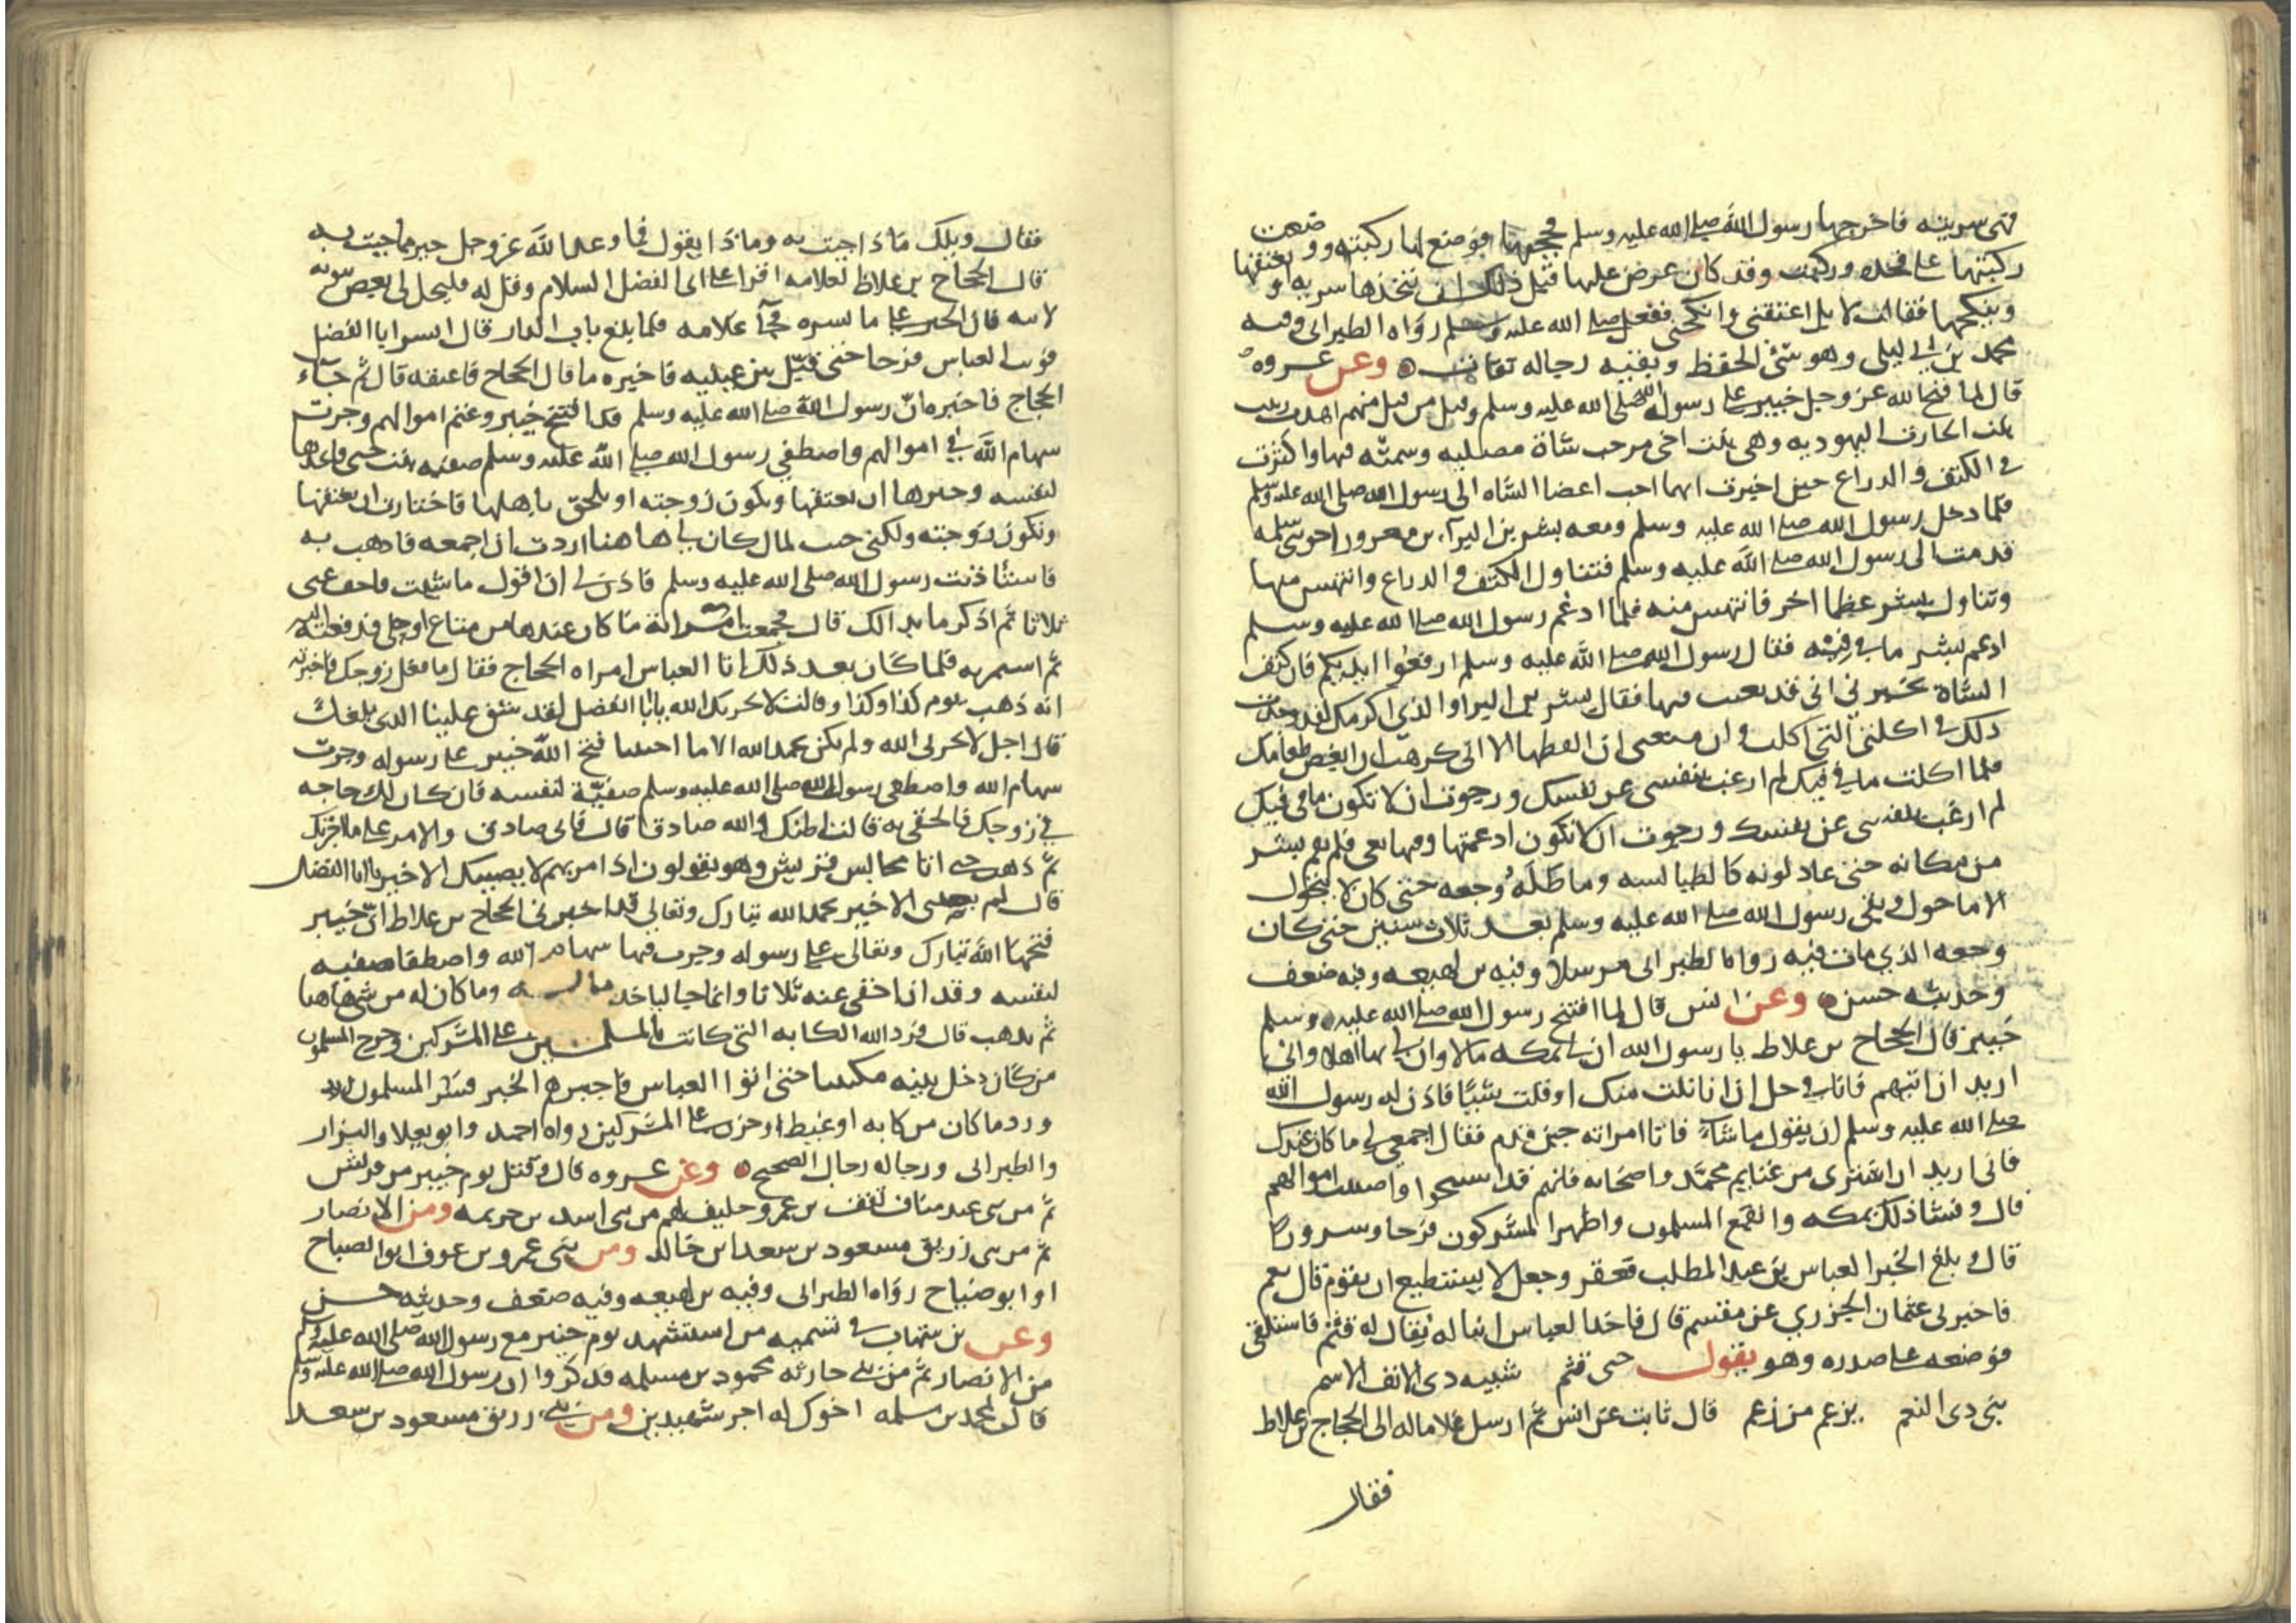 فهي سريته فاخرجها رسول الله صلى الله عليه وسلم فحجبها فوضع لها ركبته ووضعت
ركبتها على فخذه وركبت وقد كان عرض عليها قبل ذلك ان يتخذها سريه او يعتقها
وينكحها فقالت لا بل اعتقني وانكحني ففعل صلى الله عليه وسلم رواه الطبراني وفيه
محمد بن ابي ليلى وهو سئ الحفظ وبقيه رجاله ثقات وعن عروه
قال لما فتح الله عز وجل خيبر على رسوله صلى الله عليه وسلم وقتل من قتل منهم اهدت زينب
بنت الحارث اليهوديه وهي بنت اخي مرحب شاة مصليه وسمته فيها واكثرت
في الكتف والدراع حين اخبرت انهما احب اعضا الشاه الى رسول الله صلى الله عليه وسلم
فلما دخل رسول الله صلى الله عليه وسلم ومعه بشر بن البرآء بن معرور اخو بني سلمه
قدمت الى رسول الله صلى الله عليه وسلم فتناول الكتف والدراع وانتهس منها
وتناول بشر عظما اخر فانتهس منه فلما ادغم رسول الله صلى الله عليه وسلم
ادغم بشر ما في فيه فقال رسول الله صلى الله عليه وسلم ارفعوا ايديكم فان كتف
الشاة تخبرني اني قد بغيت فيها فقال بشر بن البرا والذي اكرمك لقد وجدت
ذلك في اكلتي التي اكلت وان منعني ان الفظها الا اني كرهت ان ابغض طعامك
فلما اكلت ما في فيك لم ارغب بنفسي عن نفسك ورجوت ان لا تكون ما في فيك
لم ارغب بنفسي عن نفسك ورجوت ان لا تكون ادغمتها وفيها بغي فلم يقم بشر
من مكانه حتى عاد لونه كالطيالسه وماطله وجعه حتى كان لا يتحول
الا ما حول وبقي رسول الله صلى الله عليه وسلم بعد ثلاث سنين حتى كان
وجعه الذي مات فيه رواه الطبراني مرسلا وفيه بن لهيعه وفيه ضعف
وحديثه حسن وعن انس قال لما افتتح رسول الله صلى الله عليه وسلم
خيبر قال الحجاج بن علاط يا رسول الله ان لي بمكه مالا وان لي بها اهلا واني
اريد ان اتيهم فانا في حل ان انا نلت منك او قلت شيئا فاذن له رسول الله
صلى الله عليه وسلم ان يقول ما شاء فاتا امراته حين قدم فقال اجمعي لي ما كان عندك
فاني اريد ان اشتري من غنايم محمد واصحابه فانهم قد استبيحوا واصيبت اموالهم
قال وفشا ذلك بمكه وانقمع المسلمون واظهر المشركون فرحا وسرورا
قال وبلغ الخبر العباس بن عبد المطلب فعقر وجعل لا يستطيع ان يقوم قال معمر
فاخبرني عثمان الجزري عن مقسم قال فاخذ العباس ابنا له يقال له قثم فاستلقى
فوضعه على صدره وهو يقول حبي قثم شبيه ذي الانف الاشم
بني ذي النعم يزعم من زعم قال ثابت عن انس ثم ارسل غلاما له الى الحجاج بن علاط
فقال
فقال ويلك ماذا جيت به وماذا يقول فما وعد الله عز وجل خير مما جيت به
قال الحجاج بن علاط لغلامه اقرا على ابي الفضل السلام وقل له فليخل لي بعض بيوته
لاتيه فان الخبر على ما يسره فجآ غلامه فلما بلغ باب الدار قال ابشر ابا الفضل
فوثب العباس فرحا حتى قبل بين عينيه فاخبره ما قال الحجاج فاعتقه قال ثم جآء
الحجاج فاخبره ان رسول الله صلى الله عليه وسلم قد افتتح خيبر وغنم اموالهم وجرت
سهام الله في اموالهم واصطفى رسول الله صلى الله عليه وسلم صفيه بنت حيى فاتخذها
لنفسه وخيرها ان يعتقها وتكون زوجته او تلحق باهلها فاختارت ان يعتقها
وتكون زوجته ولكني جيت لمال كان لي هاهنا اردت ان اجمعه فاذهب به
فاستاذنت رسول الله صلى الله عليه وسلم فاذن لي ان اقول ما شئت فاخف عني
ثلاثا ثم اذكر ما بدا لك قال فجمعت امراته ما كان عندها من متاع او حلي فدفعته اليه
ثم استمر به فلما كان بعد ذلك اتا العباس امراه الحجاج فقال ما فعل زوجك فاخبرته
انه ذهب يوم كذا وكذا وقالت لا يحزنك الله يا ابا الفضل لقد شق علينا الذي بلغك
قال اجل لا يحزني الله ولم يكن بحمد الله الا ما احببنا فتح الله خيبر على رسوله وجرت
سهام الله واصطفى رسول الله صلى الله عليه وسلم صفية لنفسه فان كان لك حاجه
في زوجك فالحقي به قالت اظنك والله صادقا قال فاني صادق والامر على ما اخبرتك
ثم ذهب حتى اتا مجالس قريش وهو يقولون اذا مر بهم لا يصيبك الا خير يا ابا الفضل
قال لم يصبني الا خير بحمد الله تبارك وتعالى قد اخبرني الحجاج بن علاط ان خيبر
فتحها الله تبارك وتعالى على رسوله وجرت فيها سهام الله واصطفا صفيه
لنفسه وقد ان اخفي عنه ثلاثا وانما جا لياخذ ماله وما كان له من شي هاهنا
ثم يذهب قال فرد الله الكابه التي كانت بالمسلمين على المشركين وخرج المسلمون
من كان دخل بيته مكتيبا حتى اتوا العباس فاخبرهم الخبر فسر المسلمون
ورد ما كان من كابه او غيظ او حزن على المشركين رواه احمد وابو يعلا والبزار
والطبراني ورجاله رجال الصحيح وعن عروه قال وقتل يوم خيبر من قريش
ثم من بني عبد مناف ثقف بن عمرو حليف لهم من بني اسد بن خزيمه ومن الانصار
ثم من بني زريق مسعود بن سعد بن خالد ومن بني عمرو بن عوف ابو الصباح
او ابو ضياح رواه الطبراني وفيه بن لهيعه وفيه ضعف وحديثه حسن
وعن بن شهاب في تسميه من استشهد يوم خيبر مع رسول الله صلى الله عليه وسلم
من الانصار ثم من بني حارثه محمود بن مسلمه فذكروا ان رسول الله صلى الله عليه وسلم
قال لمحمد بن مسلمه اخوك له اجر شهيدين ومن بني زريق مسعود بن سعد